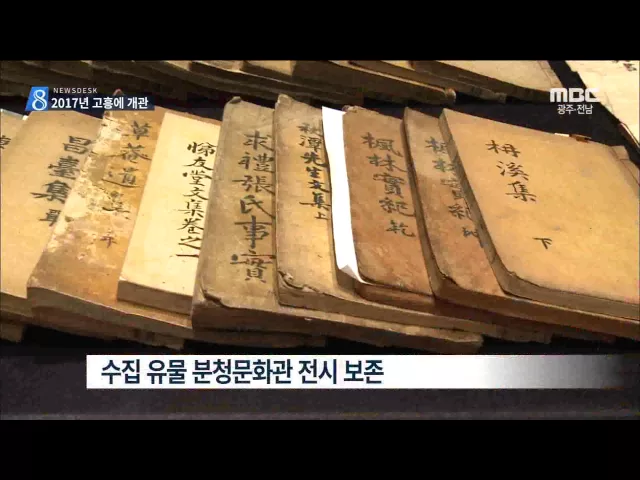 NEWSDESK
8 2017년 고흥에 개관
MBC
광주·전남
昌臺集
草菴遺集
悌友堂文集卷之一
求禮張氏事實
秋潭先生文集上
楓林實紀乾
楓林實紀坤
梅溪集
下
수집 유물 분청문화관 전시 보존